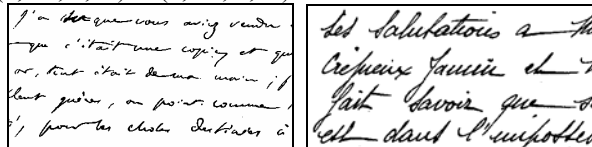 J'ai su que vous aviez vendu
que c'était une copie, et qu
or, tout était de ma main, j
lent guères, on point comme
pour les choses destinées à
Ses Salutations a M
Crépieux Jamin et
fait savoir que s
est dans l'impossi